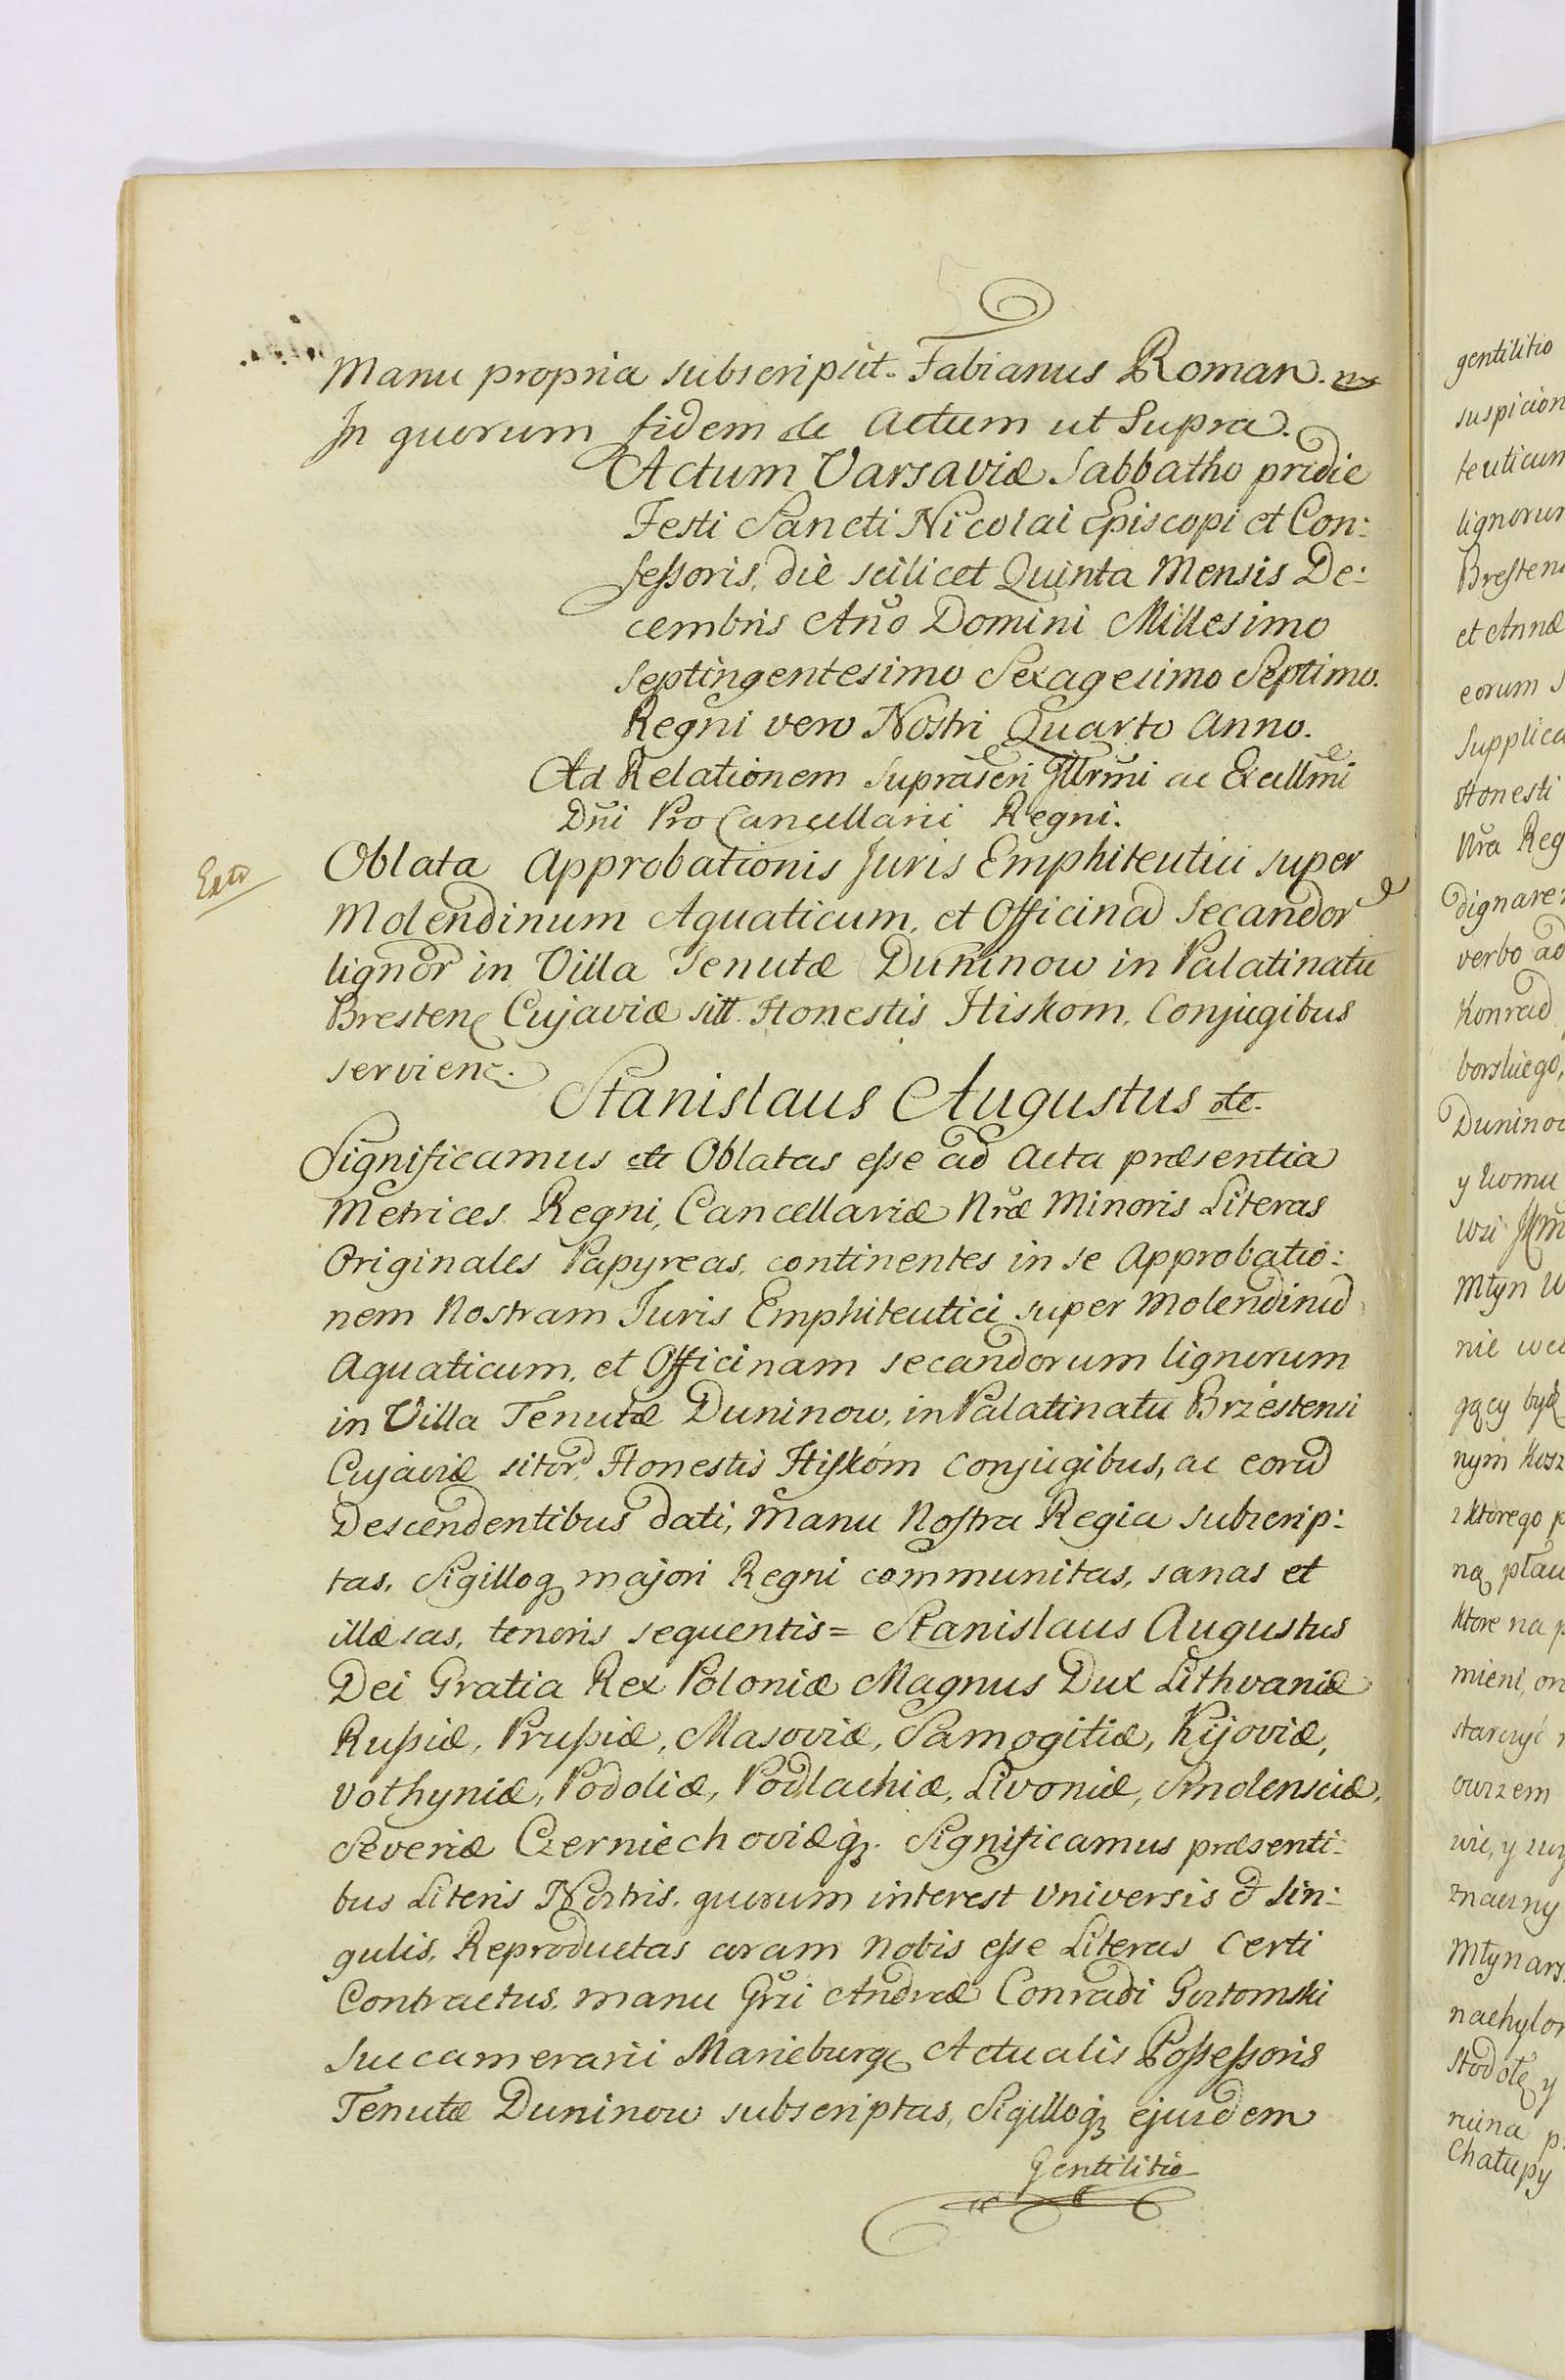 Manu propria subscripsit. Fabianus Roman. mp
In quorum fidem etc Actum ut Supra.
Actum Varsaviæ Sabbatho pridie
Festi Sancti Nicolai Episcopi et Con:
feßoris, die scilicet Quinta Mensis De:
cembris Año Domini Millesimo
Septingentesimo Sexagesimo Septimo.
Regni vero Nostri Quarto Anno.
Ad Relationem Suprascri Jllrmi ac Excellmi
Dñi Pro Cancellarii Regni.
Extr
Oblata Approbationis Juris Emphiteutici super
Molendinum Aquaticum, et Officina Secandor
lignor in Villa Tenutæ Duninow in Palatinatu
Bresten Cujaviæ sitt. Honestis Hiskom. Conjugibus
servienc.
Stanislaus Augustus etc.
Significamus etc Oblatas eße ad Acta præsentia
Metrices Regni, Cancellariæ Nræ Minoris Literas
Originales Papyreas, continentes in se Approbatio:
nem Nostram Juris Emphiteutici super Molendinũ
Aquaticum, et Officinam secandorum lignorum
in Villa Tenutæ Duninow, in Palatinatu Brzéstensi
Cujaviæ sitor Honestis Hißkóm Conjugibus, ac eorũ
Descendentibus dati, Manu Nostra Regia subscrip:
tas, Sigilloq majori Regni communitas, sanas et
illæsas, tenoris sequentis = Stanislaus Augustus
Dei Gratia Rex Poloniæ Magnus Dux Lithvaniæ
Rußiæ, Prußiæ, Masoviæ, Samogitiæ, Kijoviæ,
Volhyniæ, Podoliæ, Podlachiæ, Livoniæ, Smolensciæ,
Severiæ Czerniechoviæq. Significamus præsenti:
bus Literis Nostris, quorum interest Universis et Sin:
gulis, Reproductas coram Nobis eße Literas certi
Contractus, manu Gñi Andreæ Conradi Gortomski
Succamerarii Marieburg Actualis Poßeßoris
Tenutæ Duninow subscriptas, Sigilloq ejusdem
Gentilitio
gentilitio
suspicion
teuticum
lignorum
Bresten
et Annæ
eorum
Supplica
Honesti
Nra Reg
dignare
verbo ad
Konrad
borskiego,
Duninow
y komu
wsi
Młyn w
nie
gący być
nym
z ktorego p
ną
ktore na p
mieni,
starczyć
owszem
wie, y
znaczny
Młynars
nachylon
stodołę y
ruina p
Chałupy